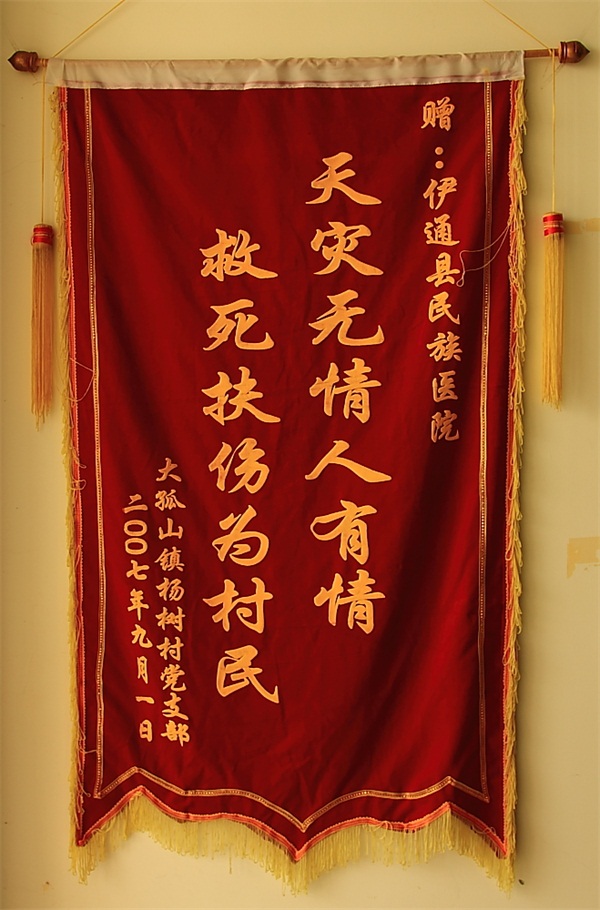 赠：伊通县民族医院
天灾无情人有情
救死扶伤为村民
大孤山镇杨树村党支部
二〇〇七年九月一日